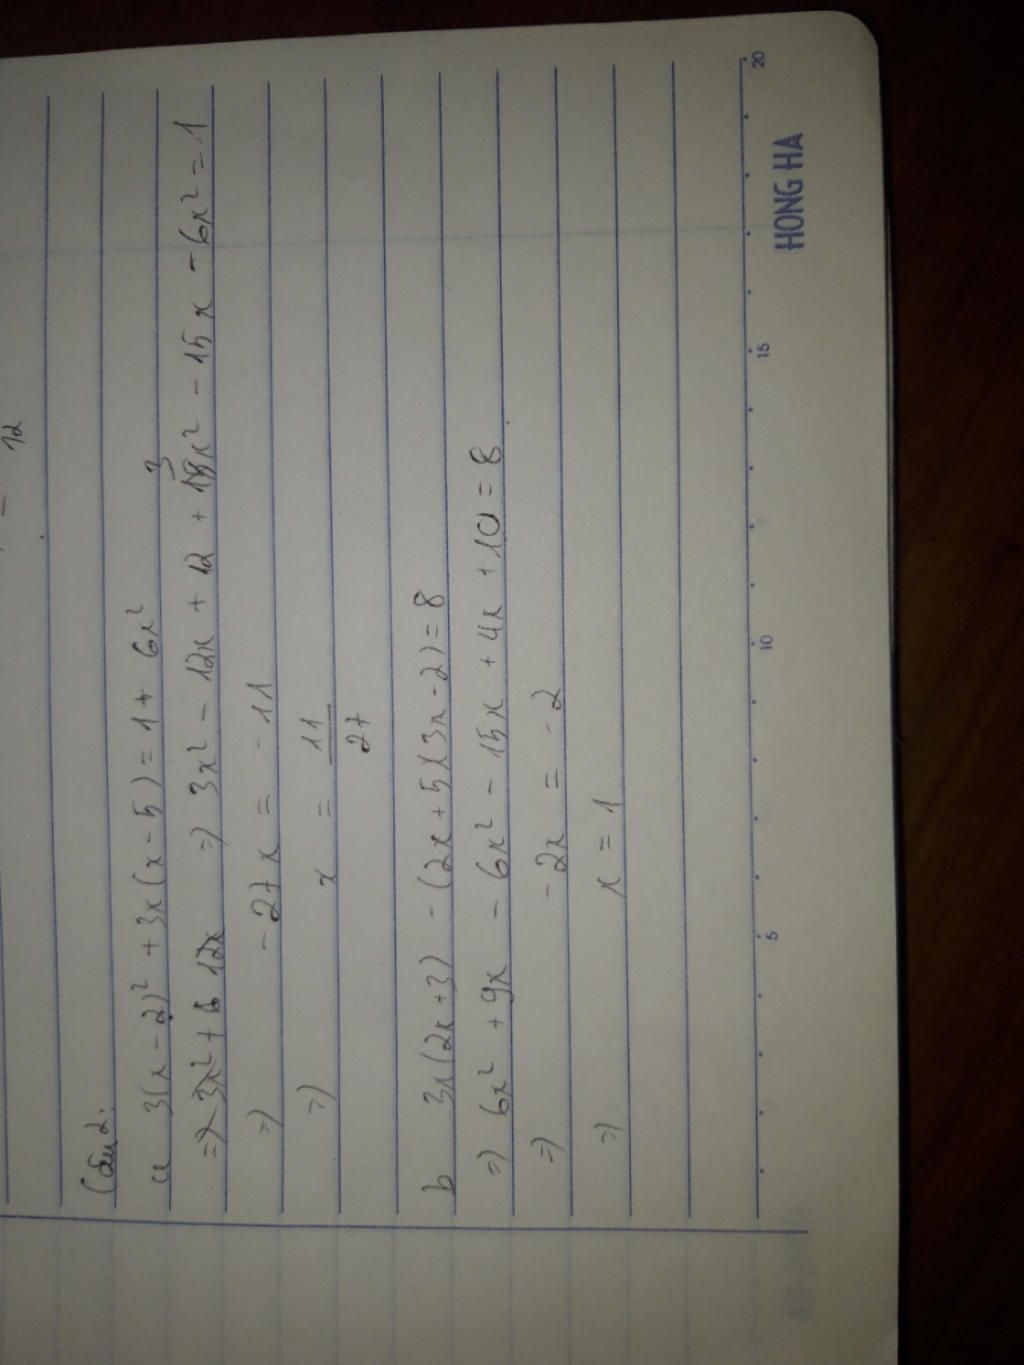 = 12
Câu 2:
a 3(x - 2)² + 3x(x - 5) = 1 + 6x²
=> 3x² + 12x => 3x² - 12x + 12 + 3x² - 15x - 6x² = 1
=> -27x = -11
=> x = 11/27
b 3x(2x + 3) - (2x + 5)(3x - 2) = 8
=> 6x² + 9x - 6x² - 15x + 4x + 10 = 8
=> -2x = -2
=> x = 1
5 10 15 20
HONG HA